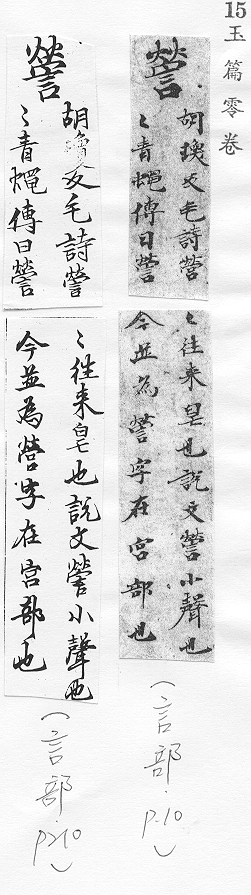 15 玉篇零卷
謍
胡瓊反毛詩謍
〻青蠅傳曰謍
〻往来皃也說文謍小聲也
今並為營字在宮部也
(言部.p.10)
謍
胡瓊反毛詩謍
〻青蠅傳曰謍
〻往来皃也說文謍小聲也
今並為營字在宮部也
(言部.p210)